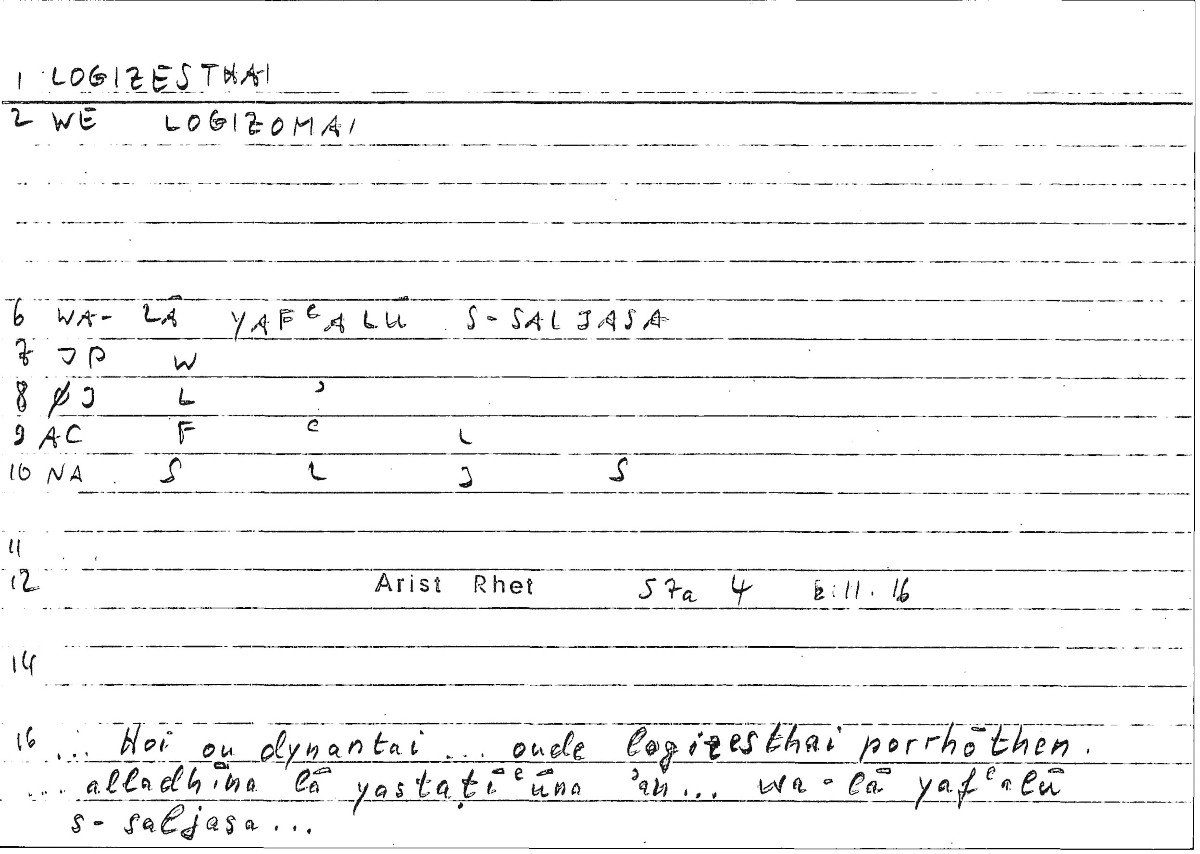 1 LOGIZESTHAI
2 WE LOGIZOMAI
6 WA- LĀ YAFʿALŪ S-SALJASA
7 JP W
8 ØJ L ʾ
9 AC F ʿ L
10 NA S L J S
11
12 Arist Rhet 57a 4 11.16
14
16 ... Hoi ou dynantai ... oude logizesthai porrhōthen.
... alladhīna lā yastaṭīʿūna ʾan... wa-lā yafʿalū
s-saljasa...